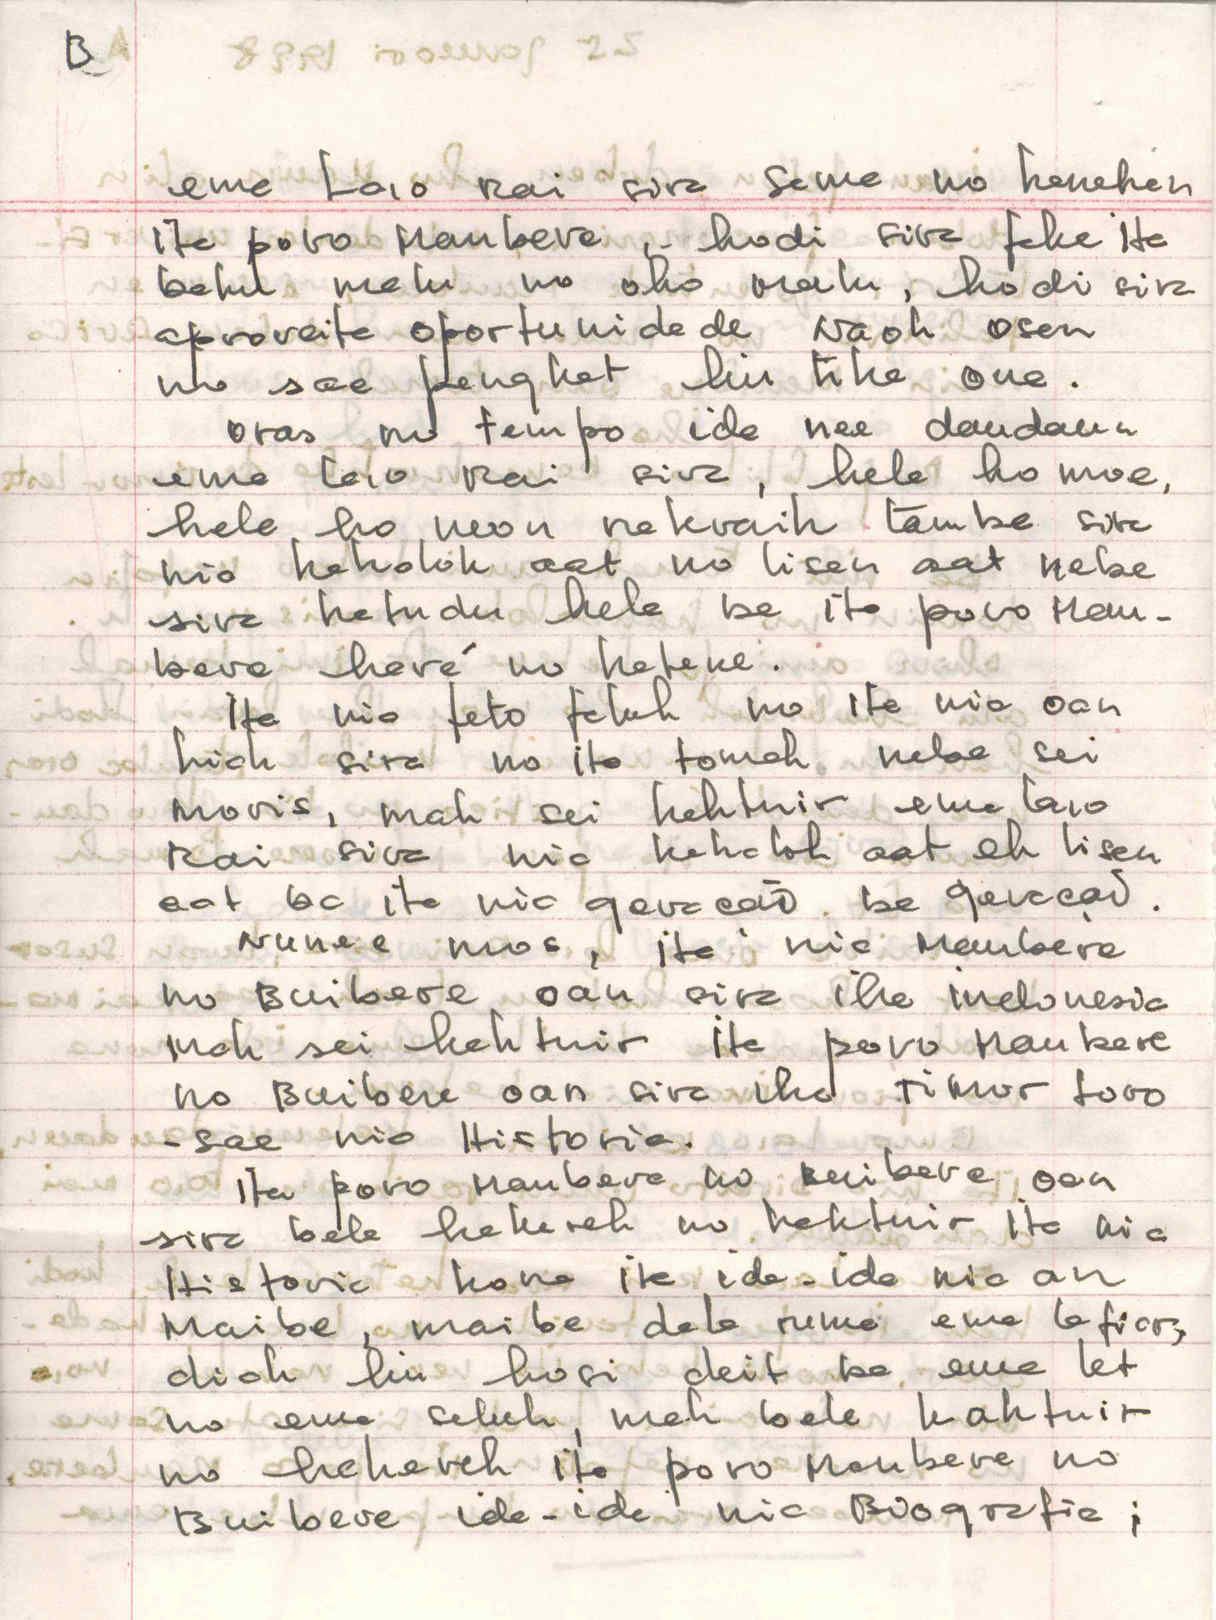 B
ema laio rai sira sama no hanehan
ita povo Maubere, hodi sira faha ita
batul malu no oho malu, hodi sira
aproveita oportunidade naok osan
no sae pangkat liu tiha ona.
oras no tempo ida nee daudaun
ema laio rai sira, hela ho moe,
hela ho neon nakraik tamba sira
nia hahalok aat no lisan aat nebe
sira hatudu hela ba ita povo Mau-
bere haré no hatene.
Ita nia feto faluk no ita nia oan
kiak sira no ita tomak nebe sei
moris, mak sei haktuir ema laio
Rai sira nia hahalok aat eh lisan
aat ba ita nia geracaõ ba geracaõ.
Nunee mos, ita nia Maubere
no Buibere oan sira iha indonesia
mak sei haktuir ita povo Maubere
no Buibere oan sira iha Timor Loro
-sae nia Historia.
Ita povo Maubere no buibere oan
sira bele hakerek no haktuir ita nia
Historia kona ita ida-ida nia an
Maibe, maibe dala ruma ema la fiar,
diak liu husi deit ba ema let
no ema seluk, mak bele haktuir
no hakerek ita povo Maubere no
Buibere ida-ida nia Biografia;